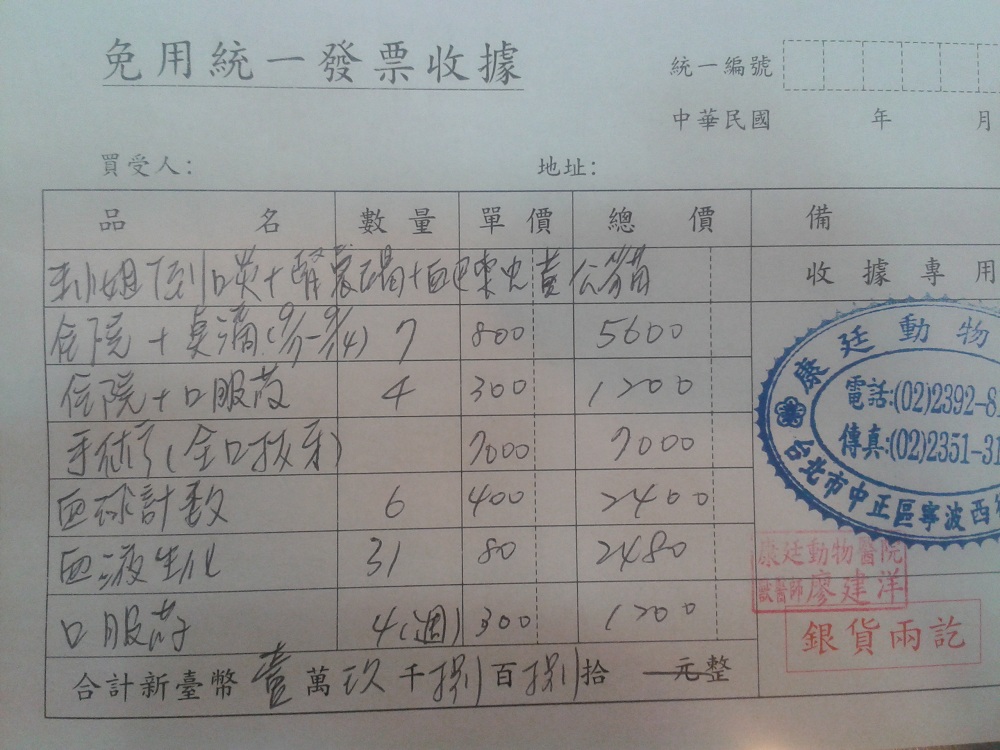 免用統一發票收據
統一編號
中華民國 年 月
買受人: 地址:
品名 數量 單價 總價 備
口炎+腎衰竭+血 公貓
收據專用
住院+点滴(9/1-9/14) 7 800 5600
住院+口服药 4 300 1200
手術(全口拔牙) 7000 7000
血球計数 6 400 2400
血液生化 31 80 2480
口服药 4(週) 300 1200
合計新臺幣壹萬玖千捌百捌拾元整
康廷動物
電話:(02)2392-8
傳真:(02)2351-31
台北市中正區寧波西
康廷動物醫院
獸醫師廖建洋
銀貨兩訖